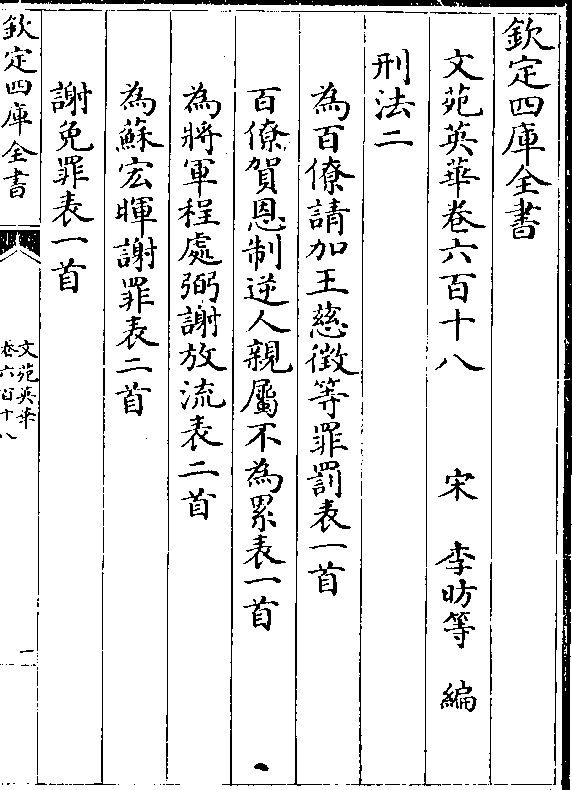 欽定四庫全書
文苑英華卷六百十八 宋 李昉等 編
刑法二
為百僚請加王慈徵等罪罰表一首
百僚賀恩制逆人親屬不為累表一首
為將軍程處弼謝放流表二首
為蘇宏暉謝罪表二首
謝免罪表一首
欽定四庫全書
文苑英華
卷六百十八
一